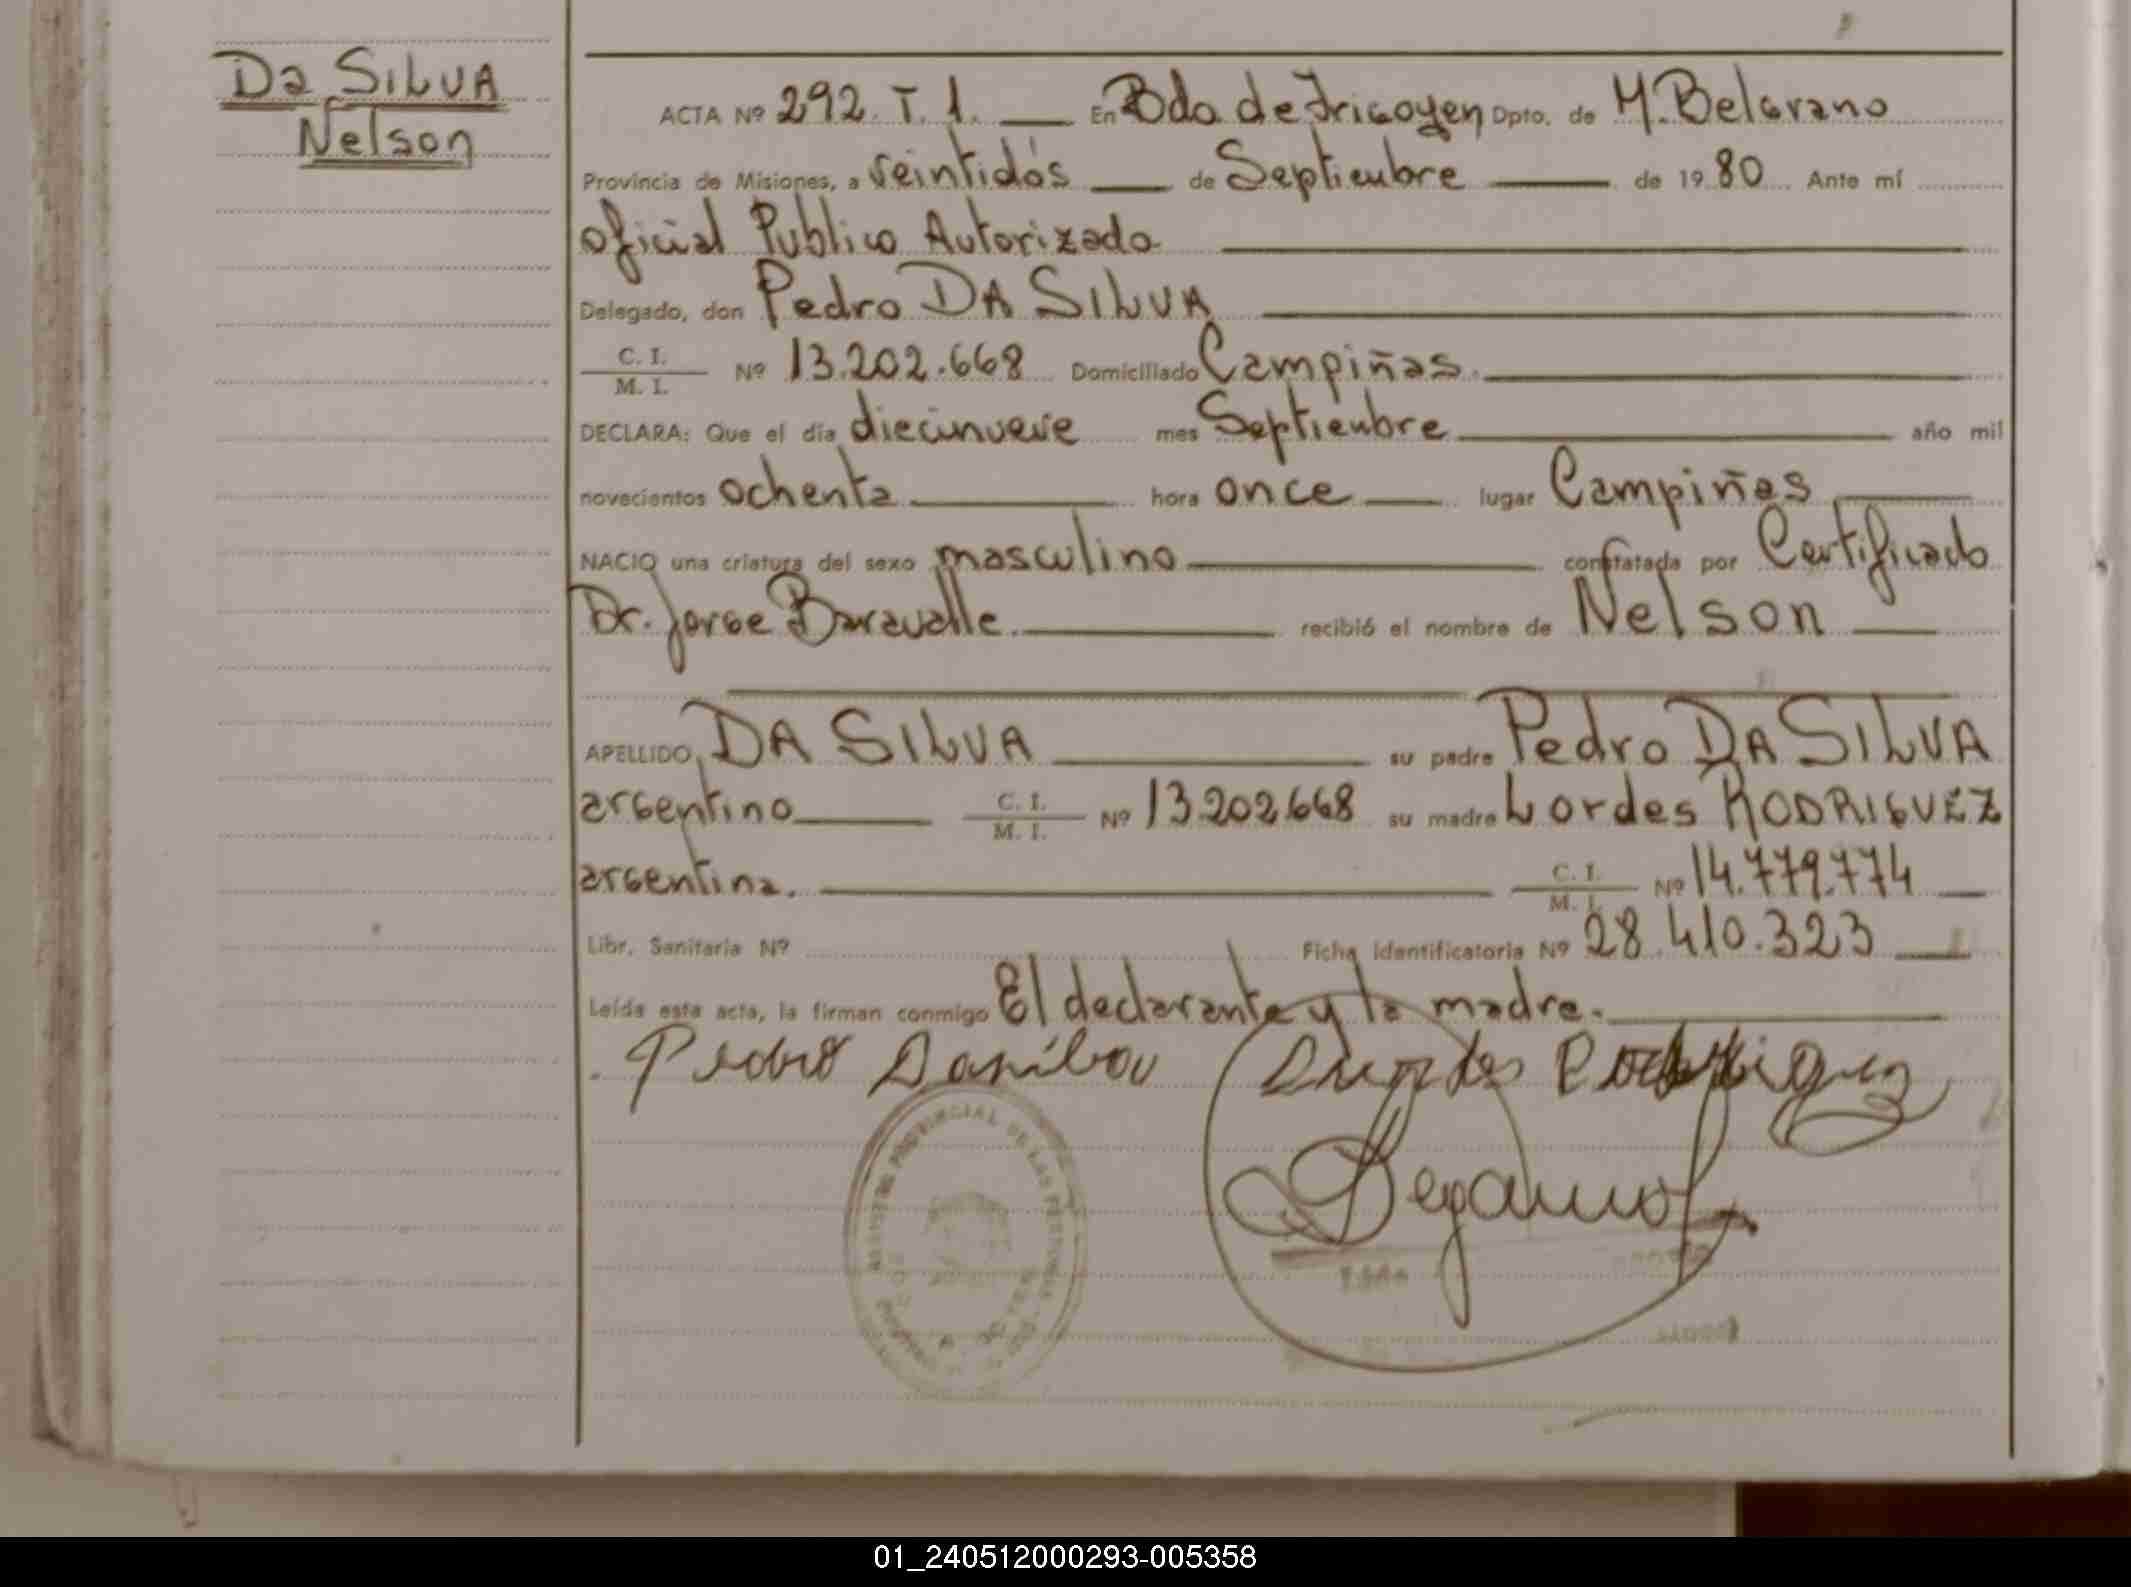 Da SILVA
Nelson
ACTA Nº 292. T. 1. En Bdo de Irigoyen Dpto. de M. Belgrano
Provincia de Misiones, a veintidós de Septiembre de 19 80 Ante mí
oficial Publico Autorizado
Delegado, don Pedro DA SILVA
C. I.
M. I. Nº 13.202.668 Domiciliado Campiñas.
DECLARA: Que el día diecinueve mes Septiembre año mil
novecientos ochenta hora once lugar Campiñas
NACIO una criatura del sexo masculino constatada por Certificado
Dr. Jorge Baravalle. recibió el nombre de Nelson
APELLIDO DA SILVA su padre Pedro DA SILVA
argentino C. I. M. I. Nº 13.202.668 su madre Lordes RODRIGUEZ
argentina. C. I. M. I. Nº 14.779.774
Libr. Sanitaria Nº Ficha Identificatoria Nº 28.410.323
Leída esta acta, la firman conmigo El declarante y la madre.
Pedro
01_240512000293-005358